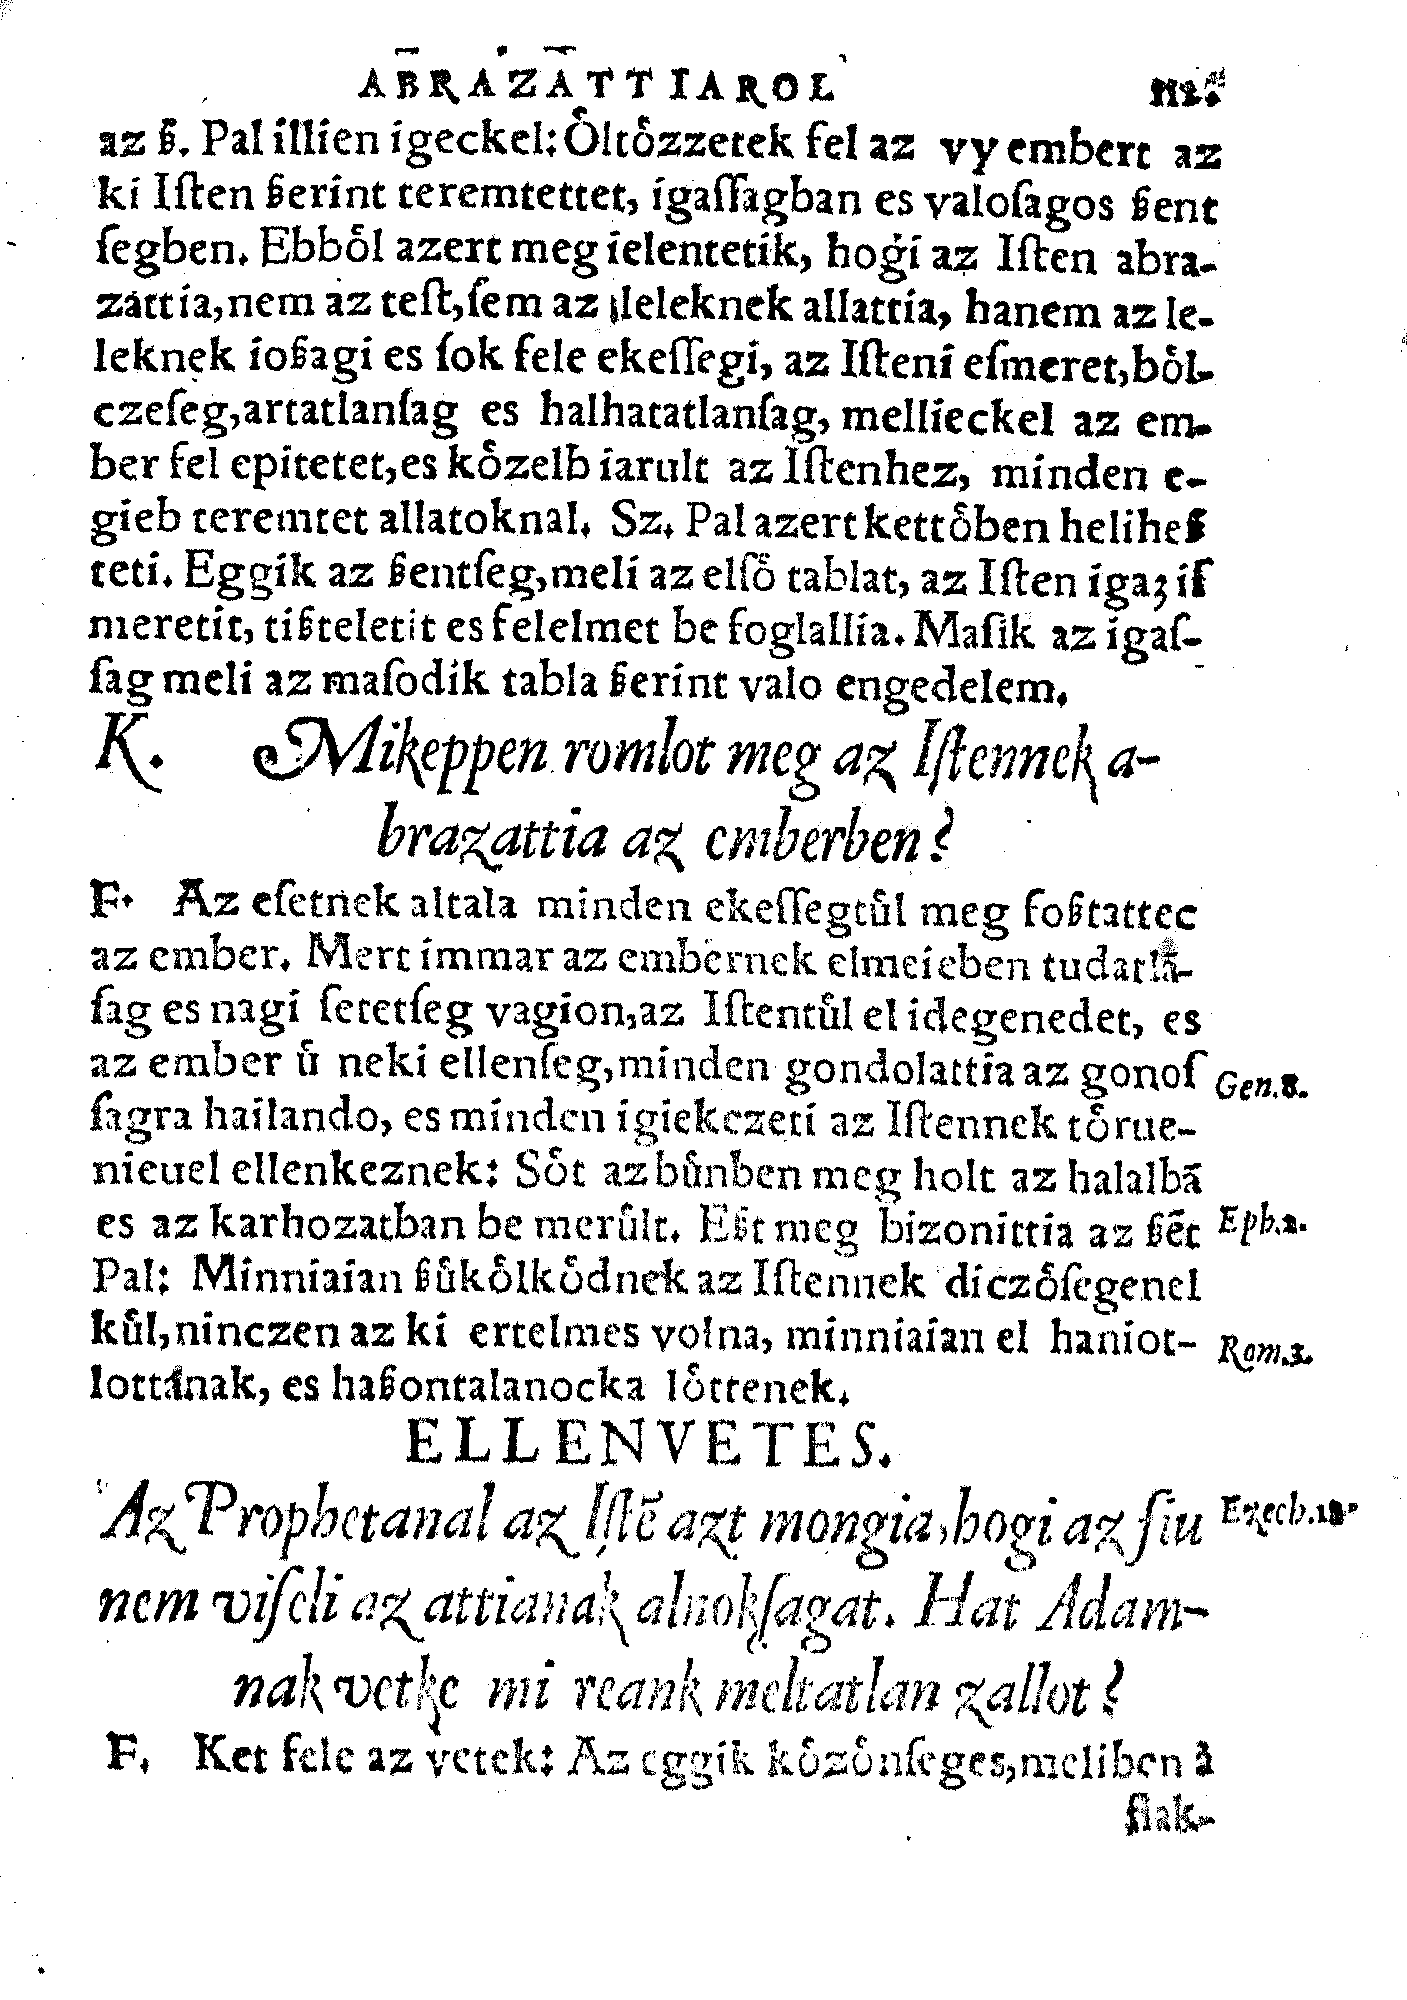 ABRAZATTIAROL 112.
az ß. Pal illien igeckel: O̊lto̊zzetek fel az vy embert az
ki Iſten ßerint teremtettet, igaſſagban es valoſagos ßent
ſegben. Ebbo̊l azert meg ielentetik, hogi az Iſten abra-
zattia, nem az teſt, ſem az leleknek allattia, hanem az le-
leknek ioßagi es ſok fele ekeſſegi, az Iſteni eſmeret, bo̊l-
czeſeg, artatlanſag es halhatatlanſag, mellieckel az em-
ber fel epitetet, es ko̊zelb iarult az Iſtenhez, minden e-
gieb teremtet allatoknal. Sz. Pal azert ketto̊ben heliheß
teti. Eggik az ßentſeg, meli az elſo̊ tablat, az Iſten igaz iſ
meretit, tißteletit es felelmet be foglallia. Maſik az igaſ-
ſag meli az maſodik tabla ßerint valo engedelem.
K. Mikeppen romlot meg az Iſtennek a-
brazattia az emberben?
F. Az eſetnek altala minden ekeſſegtůl meg foßtattec
az ember. Mert immar az embernek elmeieben tudatlā-
ſag es nagi ſetetſeg vagion, az Iſtentůl el idegenedet, es
az ember ů neki ellenſeg, minden gondolattia az gonoſ
ſagra hailando, es minden igiekezeti az Iſtennek to̊rue-
nieuel ellenkeznek: So̊t az bůnben meg holt az halalbā
es az karhozatban be merůlt. Eßt meg bizonittia az ßēt
Pal: Minniaian ßůko̊lko̊dnek az Iſtennek diczo̊ſegenel
kůl, ninczen az ki ertelmes volna, minniaian el haniot-
lottanak, es haßontalanocka lo̊ttenek.
Gen. 8.
Eph. 2.
Rom. 3.
ELLENVETES.
Az Prophetanal az Iſtē azt mongia, hogi az fiu
nem viſeli az attianak alnokſagat. Hat Adam-
nak vetke mi reank meltatlan zallot?
Ezech. 18.
F. Ket fele az vetek: Az eggik ko̊zo̊nſeges, meliben à
fiak-